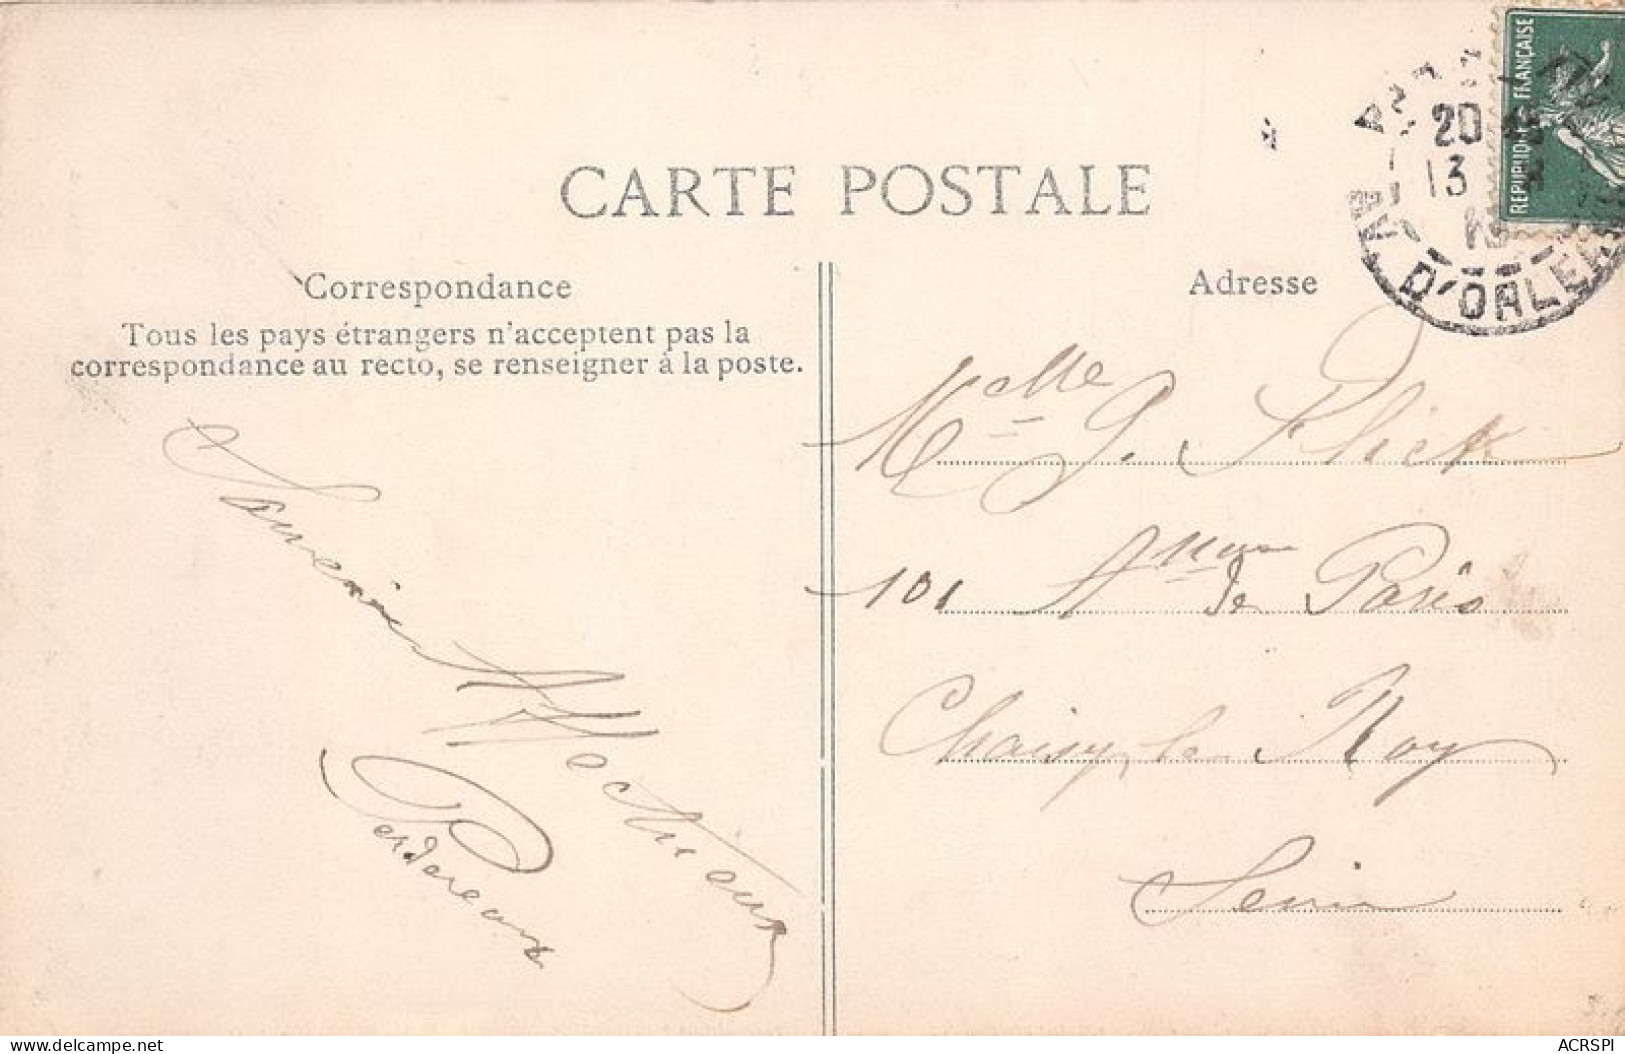 CARTE POSTALE
REPUBLIQUE FRANÇAISE
20
13
AV. D'ORLEANS
Correspondance
Tous les pays étrangers n'acceptent pas la
correspondance au recto, se renseigner à la poste.
Adresse
Melle J. Flick
101 Anue de Paris
Choisy le Roy
Seine
Souvenir
Perdereau
ACRSPI